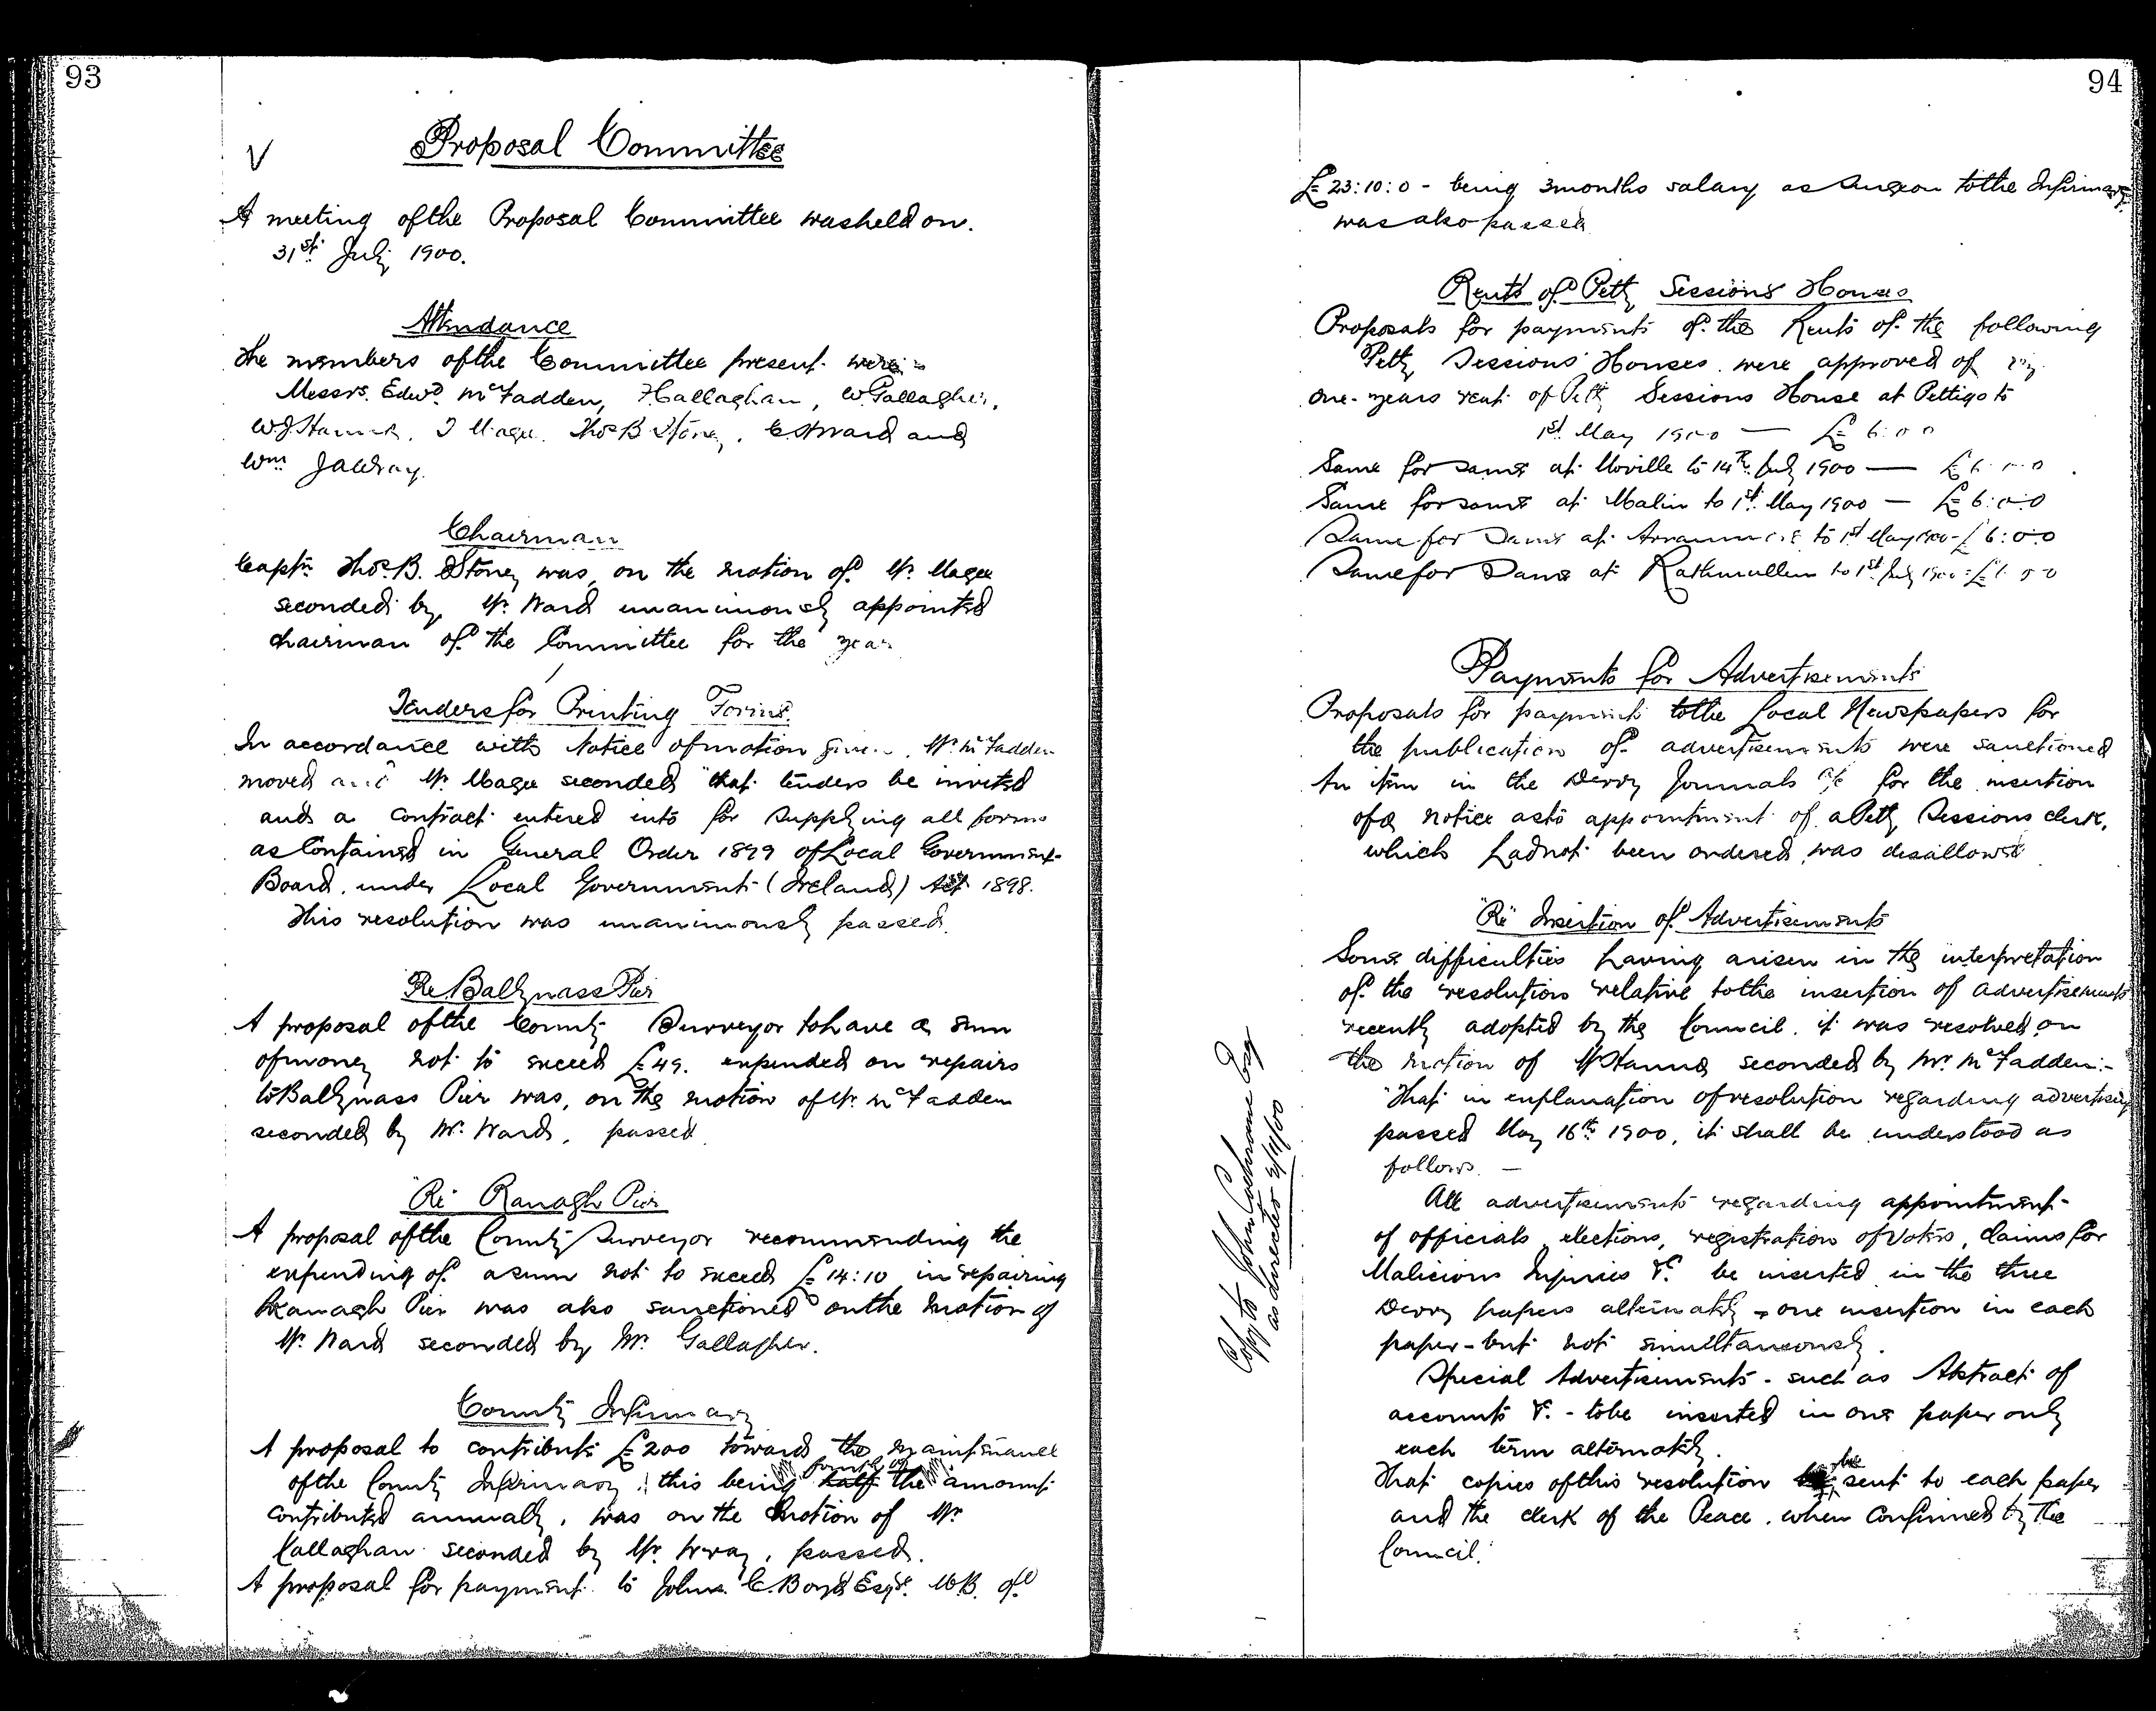 93
Proposal Committee
A meeting of the Proposal Committee was held on
31st July 1900.
Attendance
The members of the Committee present were :-
Messrs. Edwd. McFadden, J Callaghan, W. Gallagher,
W J Hanna, J Magee, Thos B Stoney, E Ward and
Wm JA Wray.
Chairman
Captn Thos. B. Stoney was, on the motion of Mr. Magee
seconded by Mr. Ward unanimously appointed
chairman of the Committee for the year
Tenders for Printing Forms.
In accordance with Notice of motion given, Mr. McFadden
moved and Mr. Magee seconded "that tenders be invited
and a contract entered into for supplying all forms
as Contained in General Order 1899 of Local Government
Board, under Local Government (Ireland) Act 1898.
This resolution was unanimously passed.
Re Ballyness Pier
A proposal of the County Surveyor to have a sum
of money not to exceed £49. expended on repairs
to Ballyness Pier was, on the motion of Mr. McFadden
seconded by Mr. Ward, passed
"Re" Ranagh Pier
A proposal of the County Surveyor recommending the
expending of a sum not to exceed £14:10 in repairing
Ranagh Pier was also sanctioned on the motion of
Mr. Ward seconded by Mr. Gallagher.
County Infirmary
A proposal to contribute £200 towards the maintenance
of the County Infirmary, this being half the amount
contributed annually, was on the motion of Mr.
Callaghan seconded by Mr. Wray, passed.
A proposal for payment to John C. Boyd Esqr. M.B. of
94
£23:10:0 - being 3 months salary as Surgeon to the Infirmary
was also passed
Rents of Petty Sessions Houses
Proposals for payments of the Rents of the following
Petty Sessions Houses were approved of viz
One-years rent of Petty Sessions House at Pettigo to
1st May 1900 — £6:0 0
Same for same at Moville to 14th July 1900 — £6:0:0
Same for same at Malin to 1st May 1900 — £6:0:0
Same for Same at to 1st May 1900 - £6:0:0
Same for Same at Rathmullen to 1st July 1900 - £6 0 0
Payments for Advertisements
Proposals for payment to the Local Newspapers for
the publication of advertisements were sanctioned
An item in the Derry Journals a/c for the insertion
of a notice as to appointment of a Petty Sessions clerk,
which had not been ordered, was disallowed
"Re" Insertion of Advertisements
Some difficulties having arisen in the interpretation
of the resolution relative to the insertion of advertisements
recently adopted by the Council, it was resolved on
the motion of Mr Hanna seconded by Mr. McFadden :-
"That in explanation of resolution regarding advertising
passed May 16th 1900, it shall be understood as
follows. —
All advertisements regarding appointment
of officials, elections, registration of Voters, Claims for
Malicious Injuries &c. be inserted in the three
Derry papers alternately - one insertion in each
paper - but not simultaneously.
Special Advertisements - such as Abstract of
accounts &c. - to be inserted in one paper only
each term alternately.
That copies of this resolution be sent to each paper
and the clerk of the Peace, when Confirmed by the
Council."
Copy to John Cochrane Esq
as directed